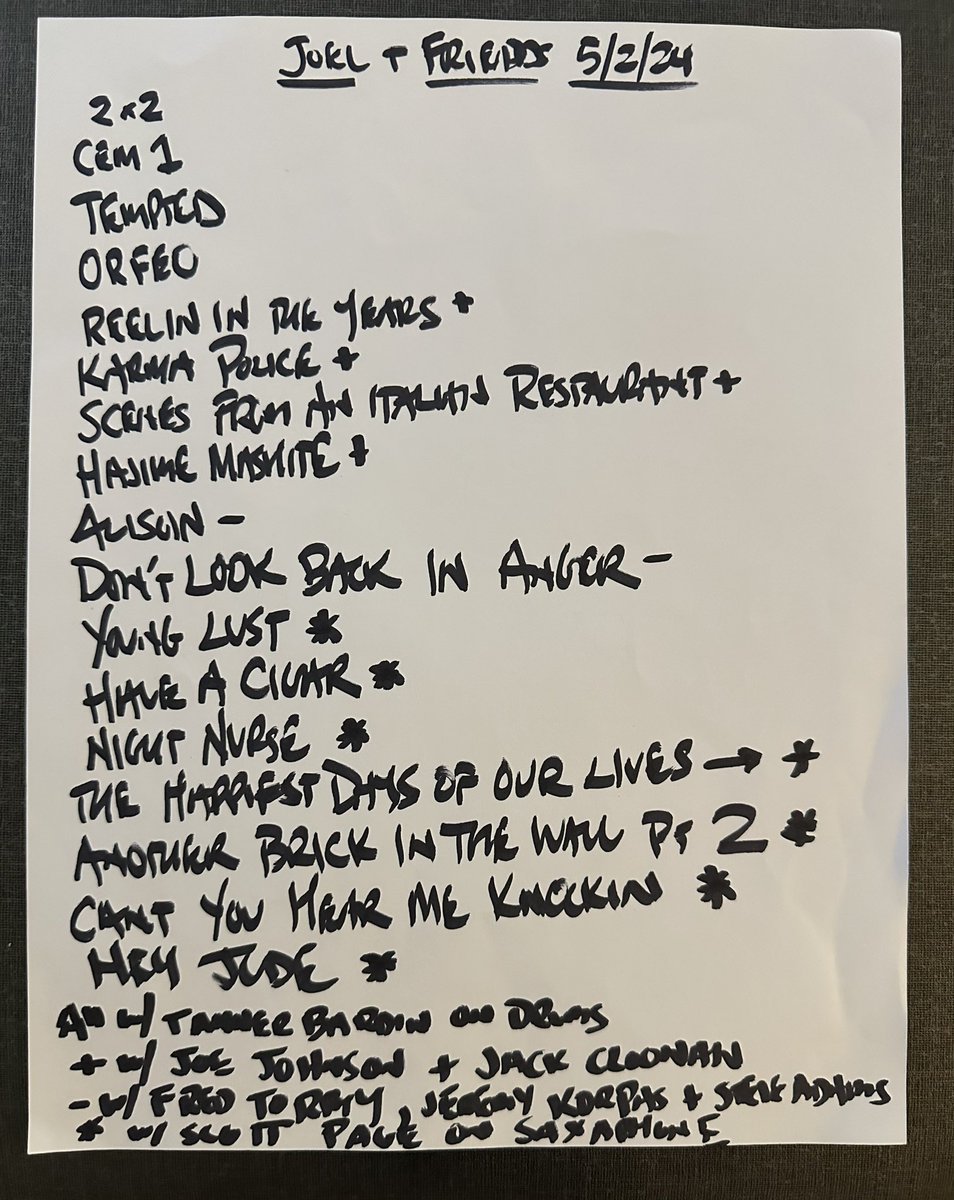 JOEL + FRIENDS 5/2/24
2x2
CEM 1
TEMPTED
ORFEO
REELIN IN THE YEARS +
KARMA POLICE +
SCENES FROM AN ITALIAN RESTAURANT +
HAJIME MASHITE +
ALISON -
DON'T LOOK BACK IN ANGER -
YOUNG LUST *
HAVE A CIGAR *
NIGHT NURSE *
THE HAPPIEST DAYS OF OUR LIVES → +
ANOTHER BRICK IN THE WALL PT 2 *
CANT YOU HEAR ME KNOCKIN *
HEY JUDE *
All w/ TANNER BARDIN ON DRUMS
+ w/ JOE JOHNSON + JACK CLOONAN
- w/ FRED TORREY, JEREMY KORPAS + STEVE ADAMS
* w/ SCOTT PAGE ON SAXAPHONE